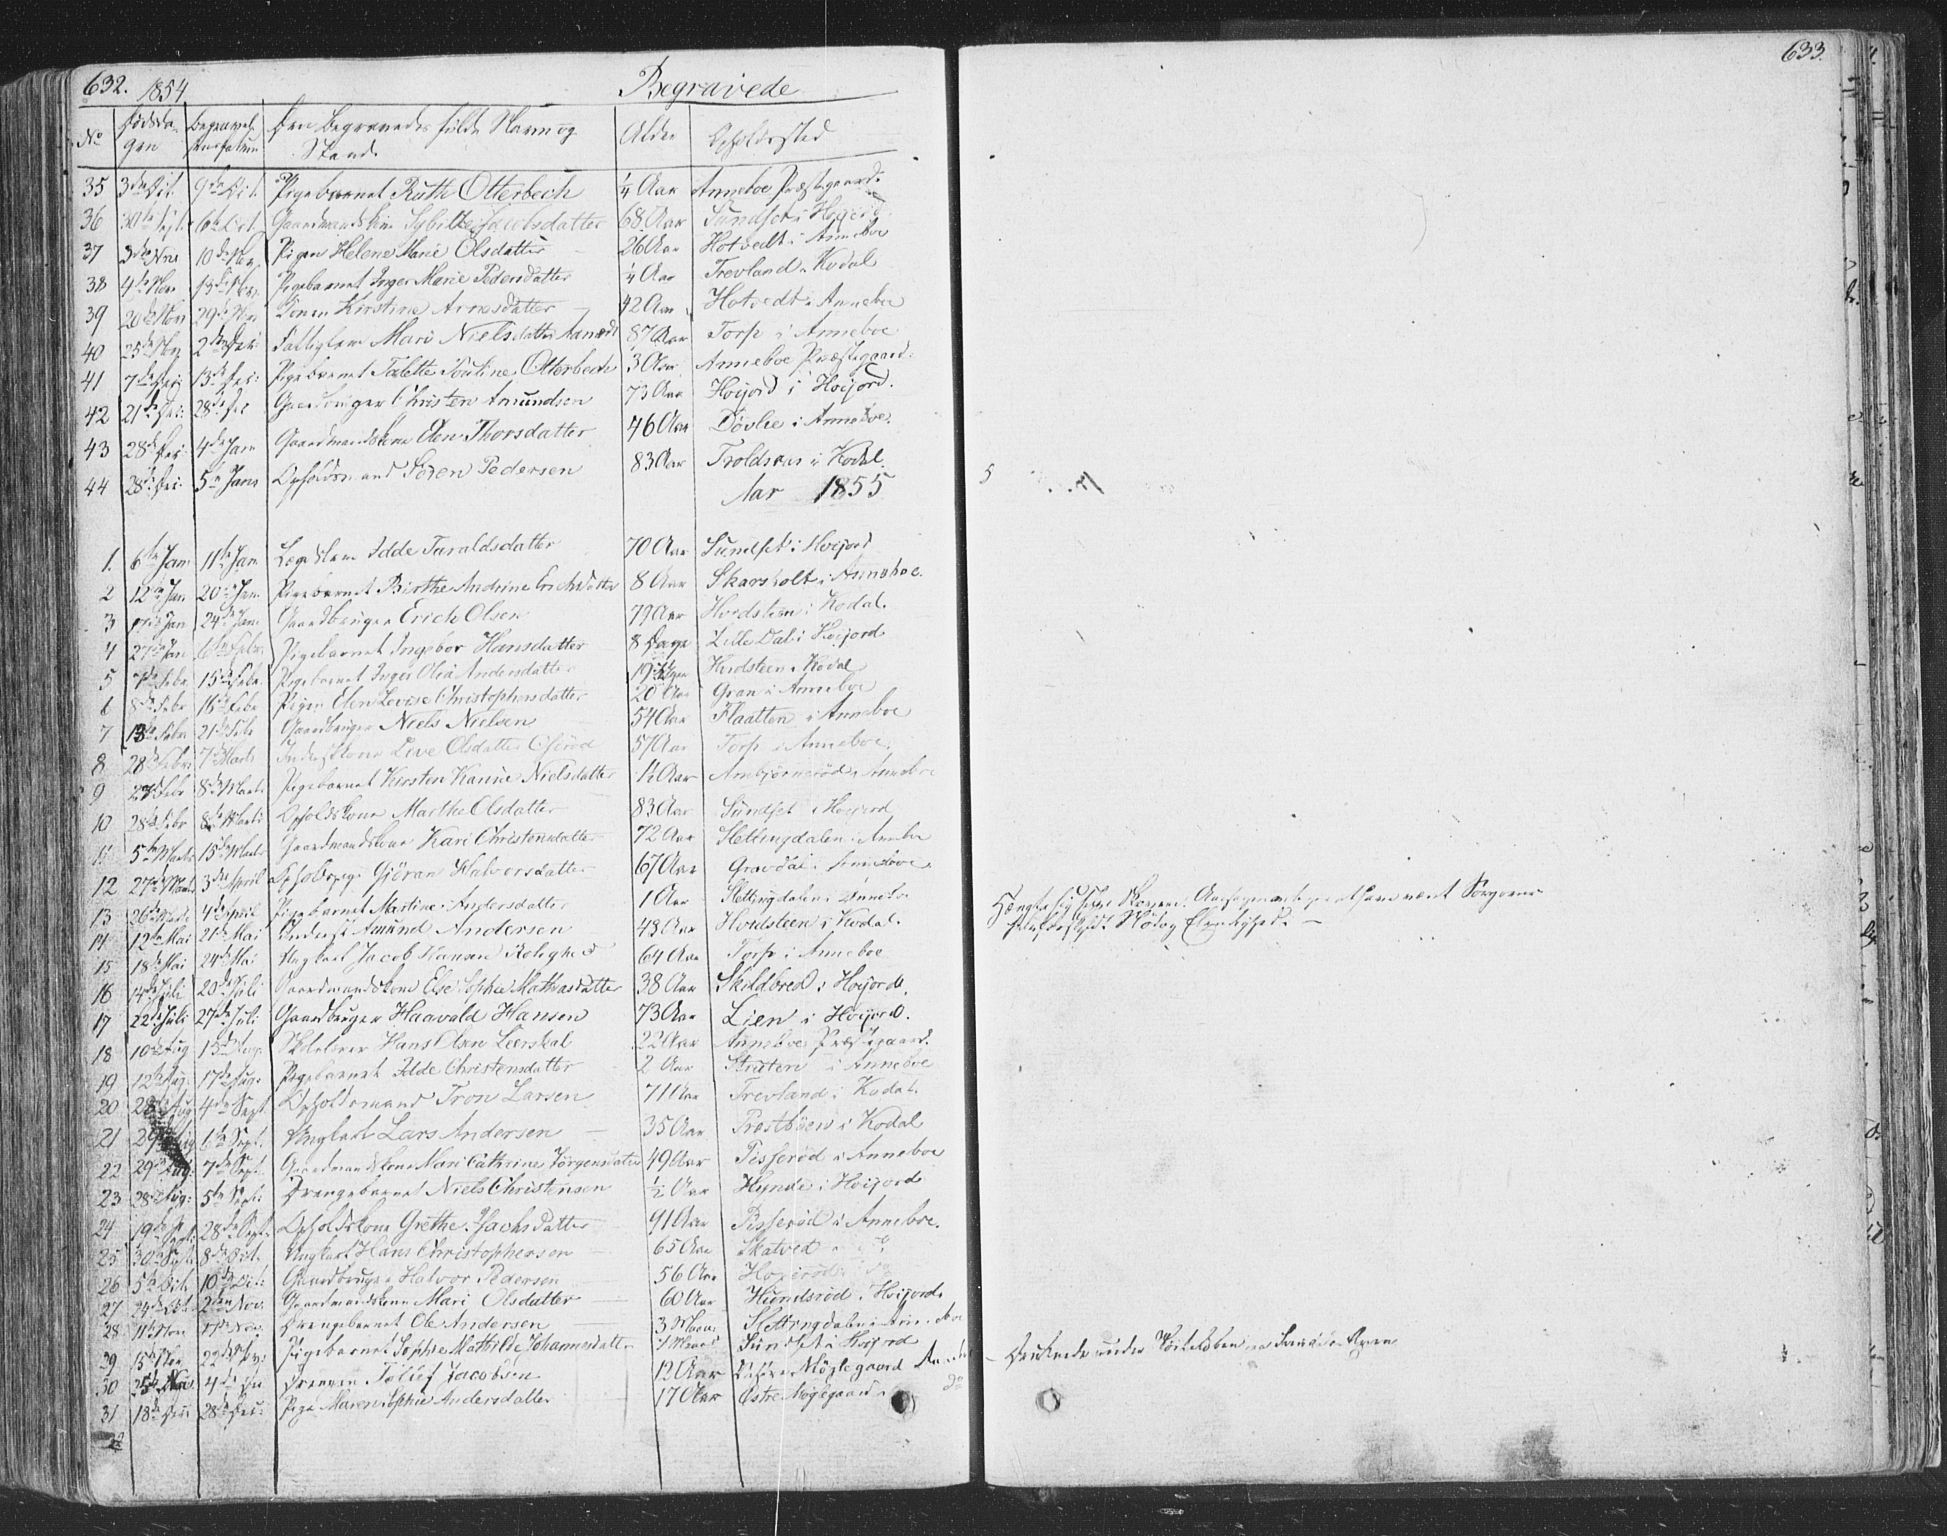 632. 1854 Begravede
No Dødsdagen Begravelsesdatum Den Begravedes fulde Navn og Stand. Alder Opholdssted
35 3die Oct. 9de Oct. Pigebarnet Ruth Otterbech 1/4 Aar Anneboe Præstegaard.
36 30te Sept. 6te Oct. Gaardmandskone Sybille Jacobsdatter 68 Aar Sundset i Høijord
37 3die Nov 10de Nov. Pigen Helene Marie Olsdatter 26 Aar Hotvedt i Anneboe
38 4de Nov 13de Nov. Pigebarnet Inger Marie Pedersdatter 1/4 Aar Trevland i Kodal
39 20de Nov 29de Nov Konen Kirstine Arnesdatter 42 Aar Hotvedt i Anneboe
40 25de Nov 2den Dec: Fattiglem Mari Nielsdatter 87 Aar Torp i Anneboe
41 7de Dec 13de Dec: Pigebarnet Talette Pouline Otterbech 3 Aar Anneboe Præstegaard:
42 21de Dec: 28de Dec Gaardbruger Christen Amundsen 73 Aar Høijord i Høijord.
43 28de Dec: 4de Jan Gaardmandskone Elen Thorsdatter 46 Aar Døvlee i Anneboe.
44 28de Dec: 5te Jan Opholdsmand Søren Pedersen 83 Aar Troldsaas i Kodal.
Aar 1855
1. 6te Jan 11te Jan Lægdslem Idde Taraldsdatter 70 Aar Sundset i Høijord
2 12te Jan 20de Jan Pigebarnet Birthe Andrine Erichsdatter 8 Aar Skarsholt i Anneboe.
3 Jan 24de Jan Gaardbruger Erich Olsen 79 Aar Hvidsteen i Kodal.
4 27de Jan 6te Febr. Pigebarnet Ingebor Hansdatter 8 Dage Lille Dal i Høijord
5 7de Febr 15de Febr. Pigebarnet Inger Olia Andersdatter 19 Hvidsteen i Kodal
6 8de Febr 15de Febr Pigen Elen Lovise Christophersdatter 20 Aar Gran i Anneboe
7 13de Febr 21de Febr Gaardbruger Niels Nielsen 54 Aar Flaatten i Anneboe
8 28de Febr: 7de Marts Inderstkone Live Olsdatter 57 Aar Torp i Anneboe.
9 27de Febr 8de Marts Pigebarnet Kirsten Karine Nielsdatter 1/2 Aar Anbjørnsrød i Anneboe
10 28de Febr 8de Marts Opholdskone Marthe Olsdatter 83 Aar Sundset i Høijord
11 5te Marts 15de Marts Gaardmandskone Kari Christensdatter 72 Aar Slettingdalen i Anneboe
12 27de Marts 3die April Gjöran Halvorsdatter 67 Aar Gravdal i Anneboe.
13 26de Marts 4de April Pigebarnet Martine Andersdatter 1 Aar Slettingdalen i Anneboe
14 12te Mai 21de Mai Inderst Amund Andersen 48 Aar Hvidsteen i Kodal.
15 18de Mai 24de Mai Ungkarl Jacob Hansen 64 Aar Torp i Anneboe
16 14de Juli 20de Juli Gaardmandskone Else Sophie Mathiasdatter 38 Aar Skildbred i Høijord.
17 22de Juli 27de Juli Gaardbruger Haavald Hansen 73 Aar Lien i Høijord.
18 10de Aug 13de Aug. Skolelærer Hans Olsen Leerskal 22 Aar Anneboe Præstegaard.
19 12te Aug: 17de Aug: Pigebarnet Idde Christensdatter 2 Aar Straten i Anneboe
20 28de Aug 4de Sept. Opholdsmand Tron Larsen 71 Aar Trevland i Kodal.
21 29de Aug 1ste Sept. Ungkarl Lars Andersen 35 Aar Præstbøen i Kodal
22 29de Aug: 7de Sept. Gaardmandskone Mari Cathrine Jørgensdatter 49 Aar Pisserød i Anneboe
23 28de Aug: 5te Sept: Drengebarnet Niels Christensen 1/2 Aar Hynde i Høijord
24 19de Sept 28de Sept: Opholdskone Grethe Isachsdatter 91 Aar Pisserød i Anneboe.
25 30te Sept: 8de Oct. Ungkarl Hans Christophersen 65 Aar Skatved i do
26 5te Oct. 10de Oct: Gaardbruger Halvor Pedersen 56 Aar do
27 24de Oct 2den Nov. Gaardmandskone Mari Olsdatter 60 Aar Hundsrød i Høijord.
28 11te Nov 17de Nov. Drengebarnet Ole Andersen 3 Maan: Slettingdalen i Anneboe
39 15de Nov 22de Nov: Pigebarnet Sophie Mathilde Johannesdatter Maan: Sundset i Høijord
30 25de Nov 4de Dec Drengen Tollef Jacobsen 12 Aar Møglegaard Anneboe
31 18de Dec 28de Dec: Pige Maren Sophie Andersdatter 17 Aar Østre Møglegaard i do
633.
Hængte sig i Skoven. Sorgerne
Nød og Elendighed. —
— Druknede under